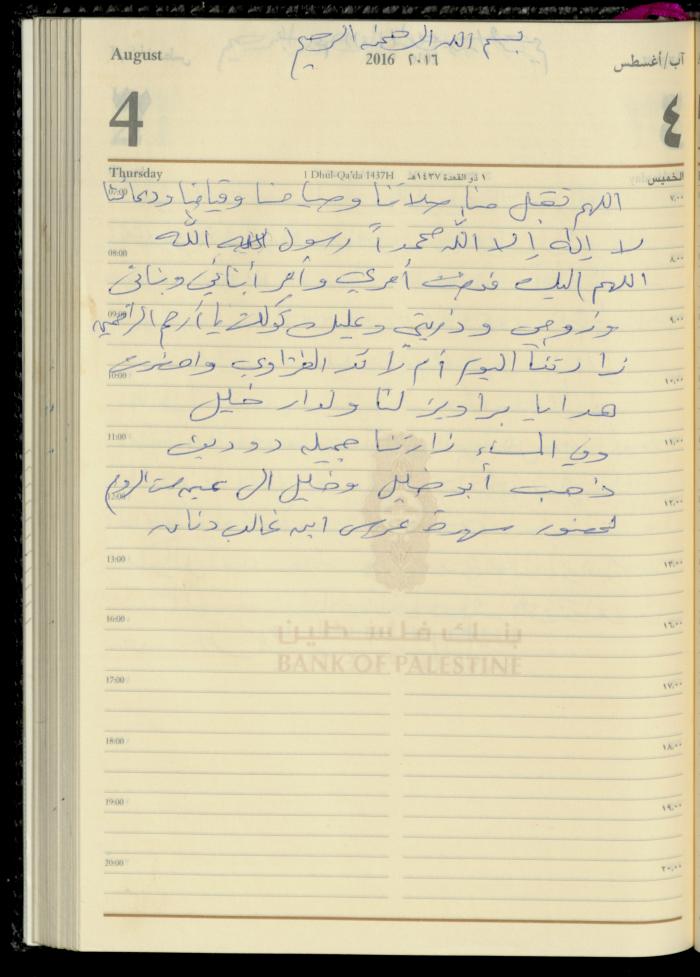 بسم الله الرحمن الرحيم
August 2016 ٢٠١٦ آب/أغسطس
4 ٤
Thursday 1 Dhul-Qa'da 1437H ١ ذو القعدة ١٤٣٧هـ الخميس
07:00 اللهم تقبل منا صلاتنا وصيامنا وقيامنا ودعائنا ٧:٠٠
لا إله إلا الله محمداً رسول الله
08:00 ٨:٠٠
اللهم إليك فوضت أمري وأمر أبنائي وبناتي
09:00 وزوجي وذريتي وعليك توكلت يا أرحم الراحمين ٩:٠٠
زارتنا اليوم أم رائد الغزاوي واحضرت
10:00 ١٠:٠٠
هدايا براويز لنا ولدار خليل
11:00 وفي المساء زارتنا جميله دودين ١١:٠٠
ذهب أبو خليل وخليل الى
12:00 ١٢:٠٠
لحضور سهرة عرس ابن غالب
13:00 ١٣:٠٠
16:00 ١٦:٠٠
بنك فلسطين
BANK OF PALESTINE
17:00 ١٧:٠٠
18:00 ١٨:٠٠
19:00 ١٩:٠٠
20:00 ٢٠:٠٠